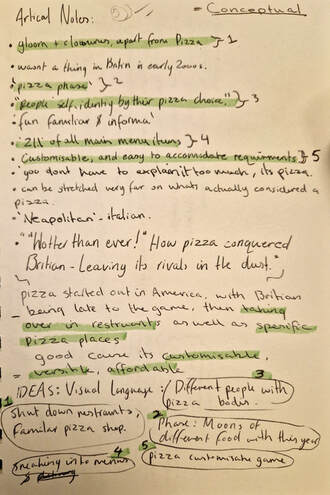 Artical Notes:
= Conceptual
• gloom + closures, apart from Pizza } 1
• wasnt a thing in Britin in early 2000s.
• 'pizza phase' } 2
• "People self-identity by their pizza choice," } 3
• fun familiar & informal
• 211 of all main menu items } 4
• Customisable, and easy to accomodate requirments } 5
• you dont have to explain it too much, its pizza.
• can be stretched very far on whats actually considered a
pizza.
• 'Neapolitan' - italian.
• "'Hotter than ever!' How pizza conquered
Britian - Leaving its rivals in the dust."
pizza started out in America, with Britian
being late to the game, then taking
over in restruants as well as specific
pizza places
good cause its customisable,
= versible, affordable
IDEAS: Visual Language :
3
Different people with
pizza bodies.
1
Shut down restraints,
familar pizza shop.
2
Phase: Moons of
different food with this year
4
sneaking into menus
5
pizza customisate game